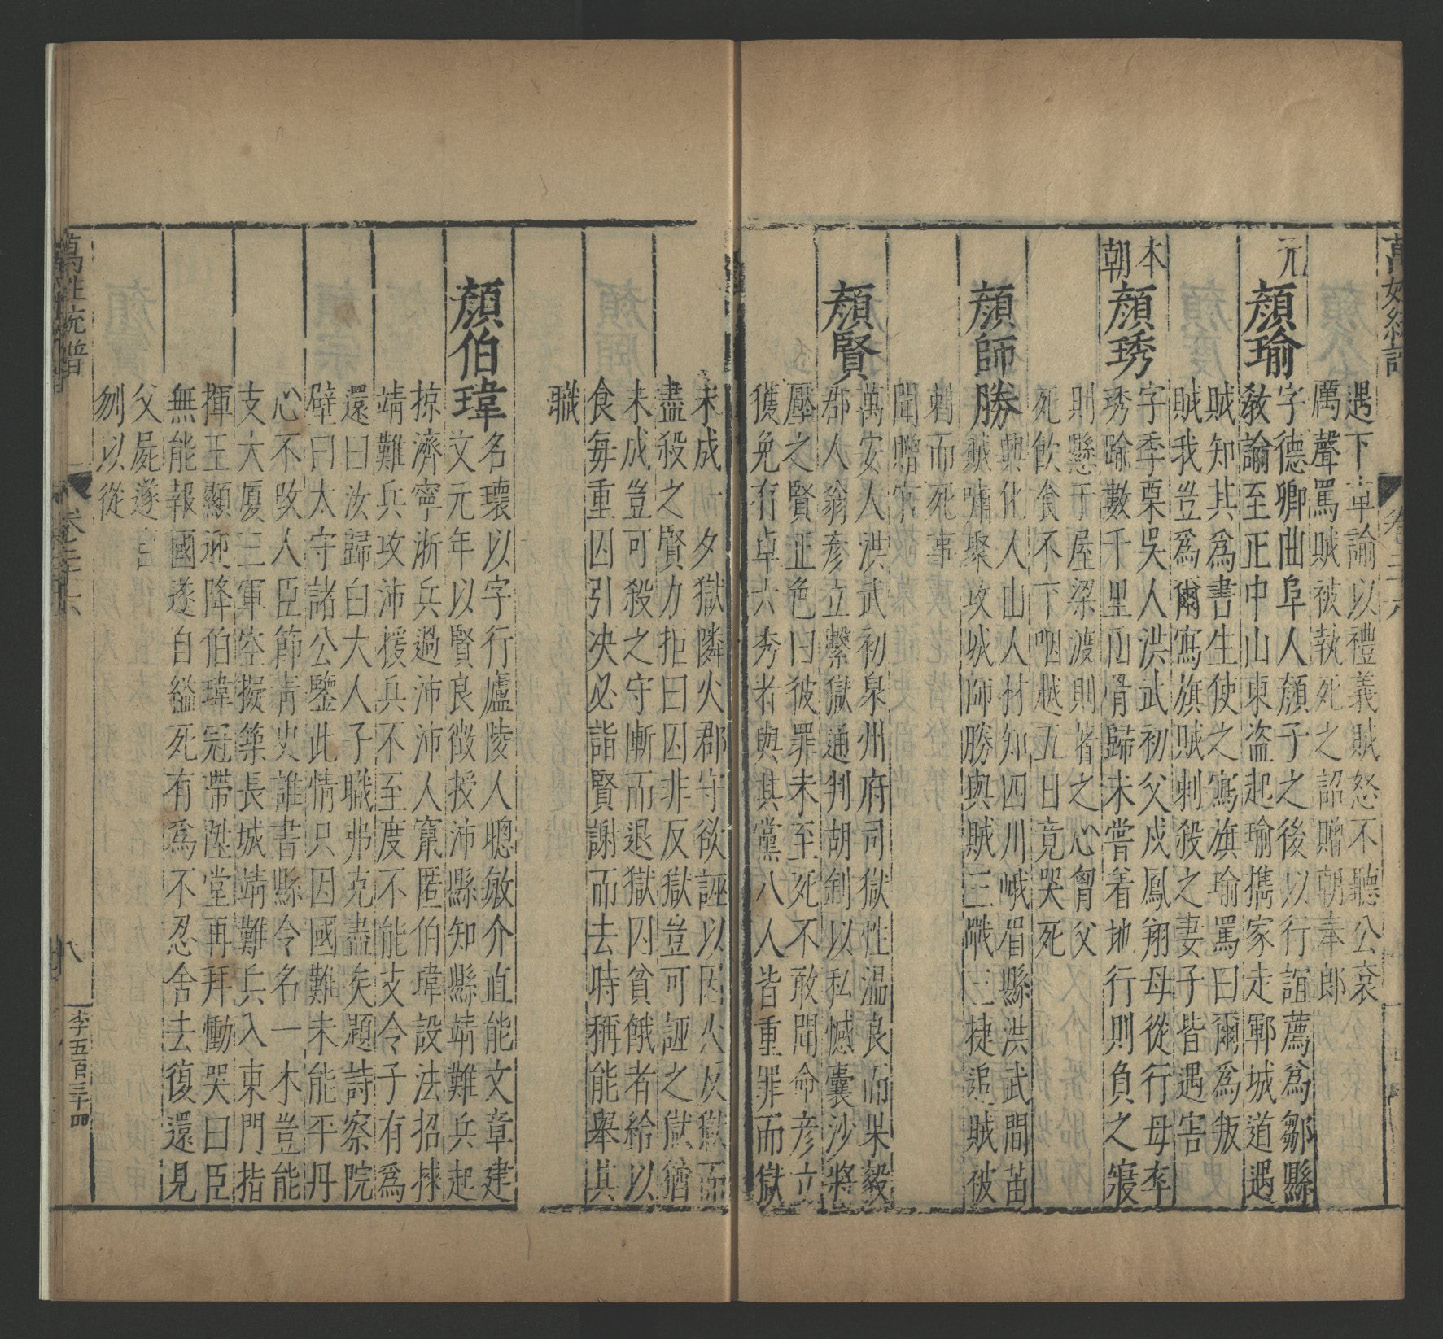 萬姓統譜 卷二十六
遇下車諭以禮義賊怒不聽公袞
厲聲罵賊被執死之詔贈朝奉郎
元
顏瑜
字德卿曲阜人顏子之後以行誼薦為鄒縣
教諭至正中山東盜起瑜攜家走鄆城道遇
賊知其為書生使之寫旗瑜罵曰爾為叛
賊我豈為爾寫旗賊刺殺之妻子皆遇害
本朝
顏琇
字季栗吳人洪武初父戍鳳翔母從行母卒
琇踰數千里函骨歸未嘗着地行則負之寢
則懸于屋梁渡則者之心胷父
死飲食不下咽越五日竟哭死
顏師勝
興化人由人材知四川峨眉縣洪武間苗
賊嘯聚攻城師勝與賊三戰三捷追賊被
鞫而死事
聞贈官
顏賢
萬安人洪武初泉州府司獄性温良而果毅
郡人翁彥立繫獄通判胡制以私憾囊沙將
壓之賢正色曰彼罪未至死不敢聞命彥立
獲免有卓六秀者與其黨八人皆重罪而獄
未成一夕獄隣火郡守欲誣以囚火反獄而
盡殺之賢力拒曰囚非反獄豈可誣之獄猶
未成豈可殺之守慚而退獄囚貧餓者給以
食每重囚引决必詣賢謝而去時稱能舉其
職
顏伯瑋
名瓌以字行廬陵人聰敏介直能文章建
文元年以賢良徵授沛縣知縣靖難兵起
掠濟寧浙兵過沛沛人竄匿伯瑋設法招捸
靖難兵攻沛援兵不至度不能支令子有為
還曰汝歸白大人子職弗克盡矣題詩察院
壁曰太守諸公鑒此情只因國難未能平丹
心不改人臣節青史誰書縣令名一木豈能
支大厦三軍空擬築長城靖難兵入東門指
揮王顯迎降伯瑋冠帶陞堂再拜慟哭曰臣
無能報國遂自縊死有為不忍舍去復還見
父屍遂自
刎以從
萬姓統譜 卷二十六 八 李五百三十四